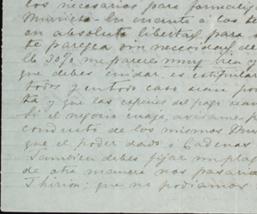 los necesarios para formalizar
Murrieta. En cuanto a las be
en absoluta libertad para
te parezca sin necesidad de
lle 30% me parece muy bien y
que debes cuidar es estipular
todos y en todo caso sean por
ta y que las especies del pago sean
Si el negocio cuaja, avísame p
conducto de los mismos Mur
que el poder dado a Cadenas
También debes fijar un plaz
de otra manera nos pasaría
Thirion: que no podíamos